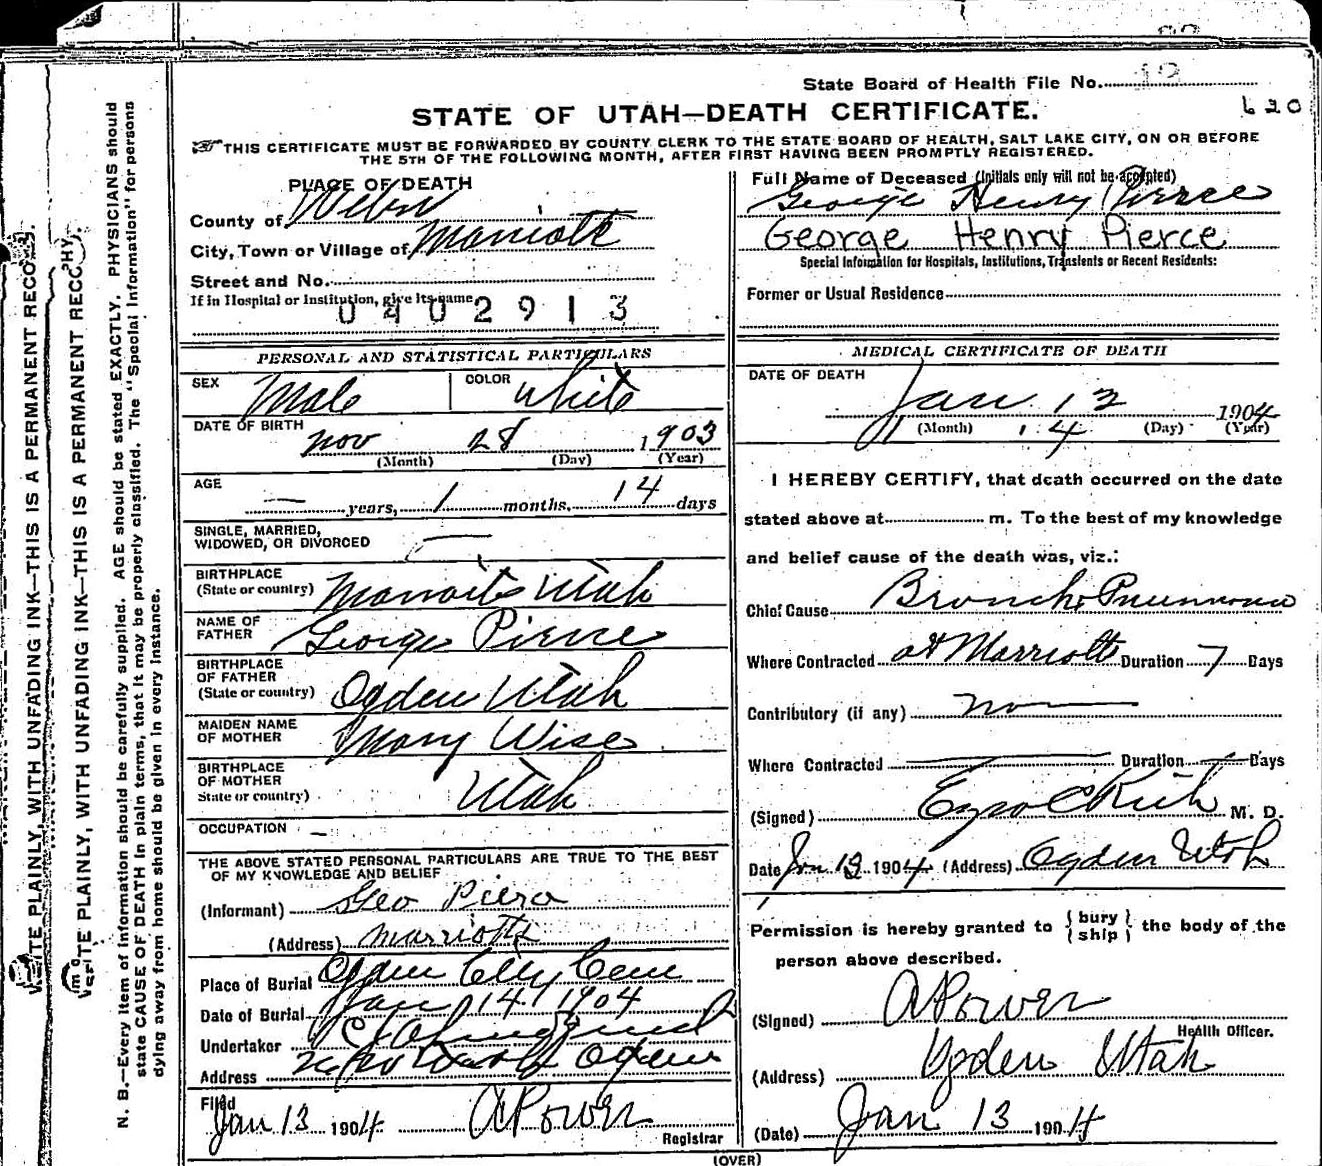 State Board of Health File No. 12
620
STATE OF UTAH—DEATH CERTIFICATE.
THIS CERTIFICATE MUST BE FORWARDED BY COUNTY CLERK TO THE STATE BOARD OF HEALTH, SALT LAKE CITY, ON OR BEFORE
THE 5TH OF THE FOLLOWING MONTH, AFTER FIRST HAVING BEEN PROMPTLY REGISTERED.
PLACE OF DEATH
County of Weber
City, Town or Village of Marriott
Street and No.
If in Hospital or Institution, give its name
0402913
PERSONAL AND STATISTICAL PARTICULARS
SEX Male COLOR White
DATE OF BIRTH Nov 28 1903
(Month) (Day) (Year)
AGE — years, 1 months, 14 days
SINGLE, MARRIED,
WIDOWED, OR DIVORCED —
BIRTHPLACE
(State or country) Marriott Utah
NAME OF
FATHER George Pierce
BIRTHPLACE
OF FATHER
(State or country) Ogden Utah
MAIDEN NAME
OF MOTHER Mary Wise
BIRTHPLACE
OF MOTHER
State or country) Utah
OCCUPATION —
THE ABOVE STATED PERSONAL PARTICULARS ARE TRUE TO THE BEST
OF MY KNOWLEDGE AND BELIEF
(Informant) Geo Pierce
(Address) Marriotts
Place of Burial Ogden City Cem
Date of Burial Jan 14 1904
Undertaker
Address Ogden
Filed
Jan 13 1904 A Power
Registrar
Full Name of Deceased (Initials only will not be accepted)
George Henry Pierce
George Henry Pierce
Special Information for Hospitals, Institutions, Transients or Recent Residents:
Former or Usual Residence
MEDICAL CERTIFICATE OF DEATH
DATE OF DEATH
Jan 12 1904
(Month) 14 (Day) (Year)
I HEREBY CERTIFY, that death occurred on the date
stated above at m. To the best of my knowledge
and belief cause of the death was, viz.:
Chief Cause Broncho Pneumonia
Where Contracted at Marriotts Duration 7 Days
Contributory (if any) non
Where Contracted — Duration — Days
(Signed) Ezra C Rich M. D.
Date Jan 13 1904 (Address) Ogden Utah
Permission is hereby granted to { bury / ship } the body of the
person above described.
(Signed) A Power
Health Officer.
(Address) Ogden Utah
(Date) Jan 13 1904
(OVER)
WRITE PLAINLY, WITH UNFADING INK—THIS IS A PERMANENT RECORD.
WRITE PLAINLY, WITH UNFADING INK—THIS IS A PERMANENT RECORD.
N. B.—Every item of information should be carefully supplied. AGE should be stated EXACTLY. PHYSICIANS should
state CAUSE OF DEATH in plain terms, that it may be properly classified. The "Special Information" for persons
dying away from home should be given in every instance.